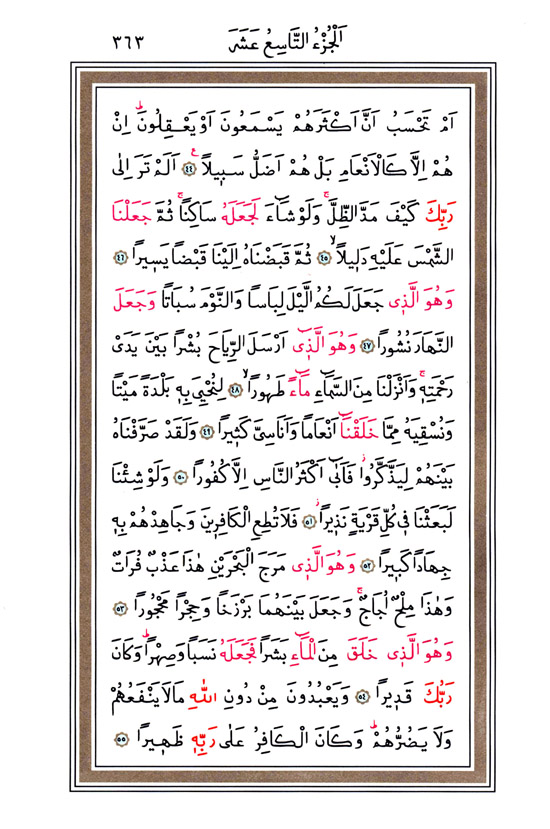 اَلْجُزْءُ التَّاسِعُ عَشَرَ ٣٦٣
اَمْ تَحْسَبُ اَنَّ اَكْثَرَهُمْ يَسْمَعُونَ اَوْ يَعْقِلُونَۜ اِنْ
هُمْ اِلَّا كَالْاَنْعَامِ بَلْ هُمْ اَضَلُّ سَب۪يلاًۚ ﴿٤٤﴾ اَلَمْ تَرَ اِلٰى
رَبِّكَ كَيْفَ مَدَّ الظِّلَّۚ وَلَوْ شَٓاءَ لَجَعَلَهُ سَاكِناًۚ ثُمَّ جَعَلْنَا
الشَّمْسَ عَلَيْهِ دَل۪يلاًۙ ﴿٤٥﴾ ثُمَّ قَبَضْنَاهُ اِلَيْنَا قَبْضاً يَس۪يراً ﴿٤٦﴾
وَهُوَ الَّذ۪ي جَعَلَ لَكُمُ الَّيْلَ لِبَاساً وَالنَّوْمَ سُبَاتاً وَجَعَلَ
النَّهَارَ نُشُوراً ﴿٤٧﴾ وَهُوَ الَّذ۪ٓي اَرْسَلَ الرِّيَاحَ بُشْراً بَيْنَ يَدَيْ
رَحْمَتِه۪ۚ وَاَنْزَلْنَا مِنَ السَّمَٓاءِ مَٓاءً طَهُوراًۙ ﴿٤٨﴾ لِنُحْيِيَ بِه۪ بَلْدَةً مَيْتاً
وَنُسْقِيَهُ مِمَّا خَلَقْنَٓا اَنْعَاماً وَاَنَاسِيَّ كَث۪يراً ﴿٤٩﴾ وَلَقَدْ صَرَّفْنَاهُ
بَيْنَهُمْ لِيَذَّكَّرُواۘ فَاَبٰٓى اَكْثَرُ النَّاسِ اِلَّا كُفُوراً ﴿٥٠﴾ وَلَوْ شِئْنَا
لَبَعَثْنَا ف۪ي كُلِّ قَرْيَةٍ نَذ۪يراًۘ ﴿٥١﴾ فَلَا تُطِعِ الْكَافِر۪ينَ وَجَاهِدْهُمْ بِه۪
جِهَاداً كَب۪يراً ﴿٥٢﴾ وَهُوَ الَّذ۪ي مَرَجَ الْبَحْرَيْنِ هٰذَا عَذْبٌ فُرَاتٌ
وَهٰذَا مِلْحٌ اُجَاجٌۚ وَجَعَلَ بَيْنَهُمَا بَرْزَخاً وَحِجْراً مَحْجُوراً ﴿٥٣﴾
وَهُوَ الَّذ۪ي خَلَقَ مِنَ الْمَٓاءِ بَشَراً فَجَعَلَهُ نَسَباً وَصِهْراًۜ وَكَانَ
رَبُّكَ قَد۪يراً ﴿٥٤﴾ وَيَعْبُدُونَ مِنْ دُونِ اللّٰهِ مَا لَا يَنْفَعُهُمْ
وَلَا يَضُرُّهُمْۜ وَكَانَ الْكَافِرُ عَلٰى رَبِّه۪ ظَه۪يراً ﴿٥٥﴾